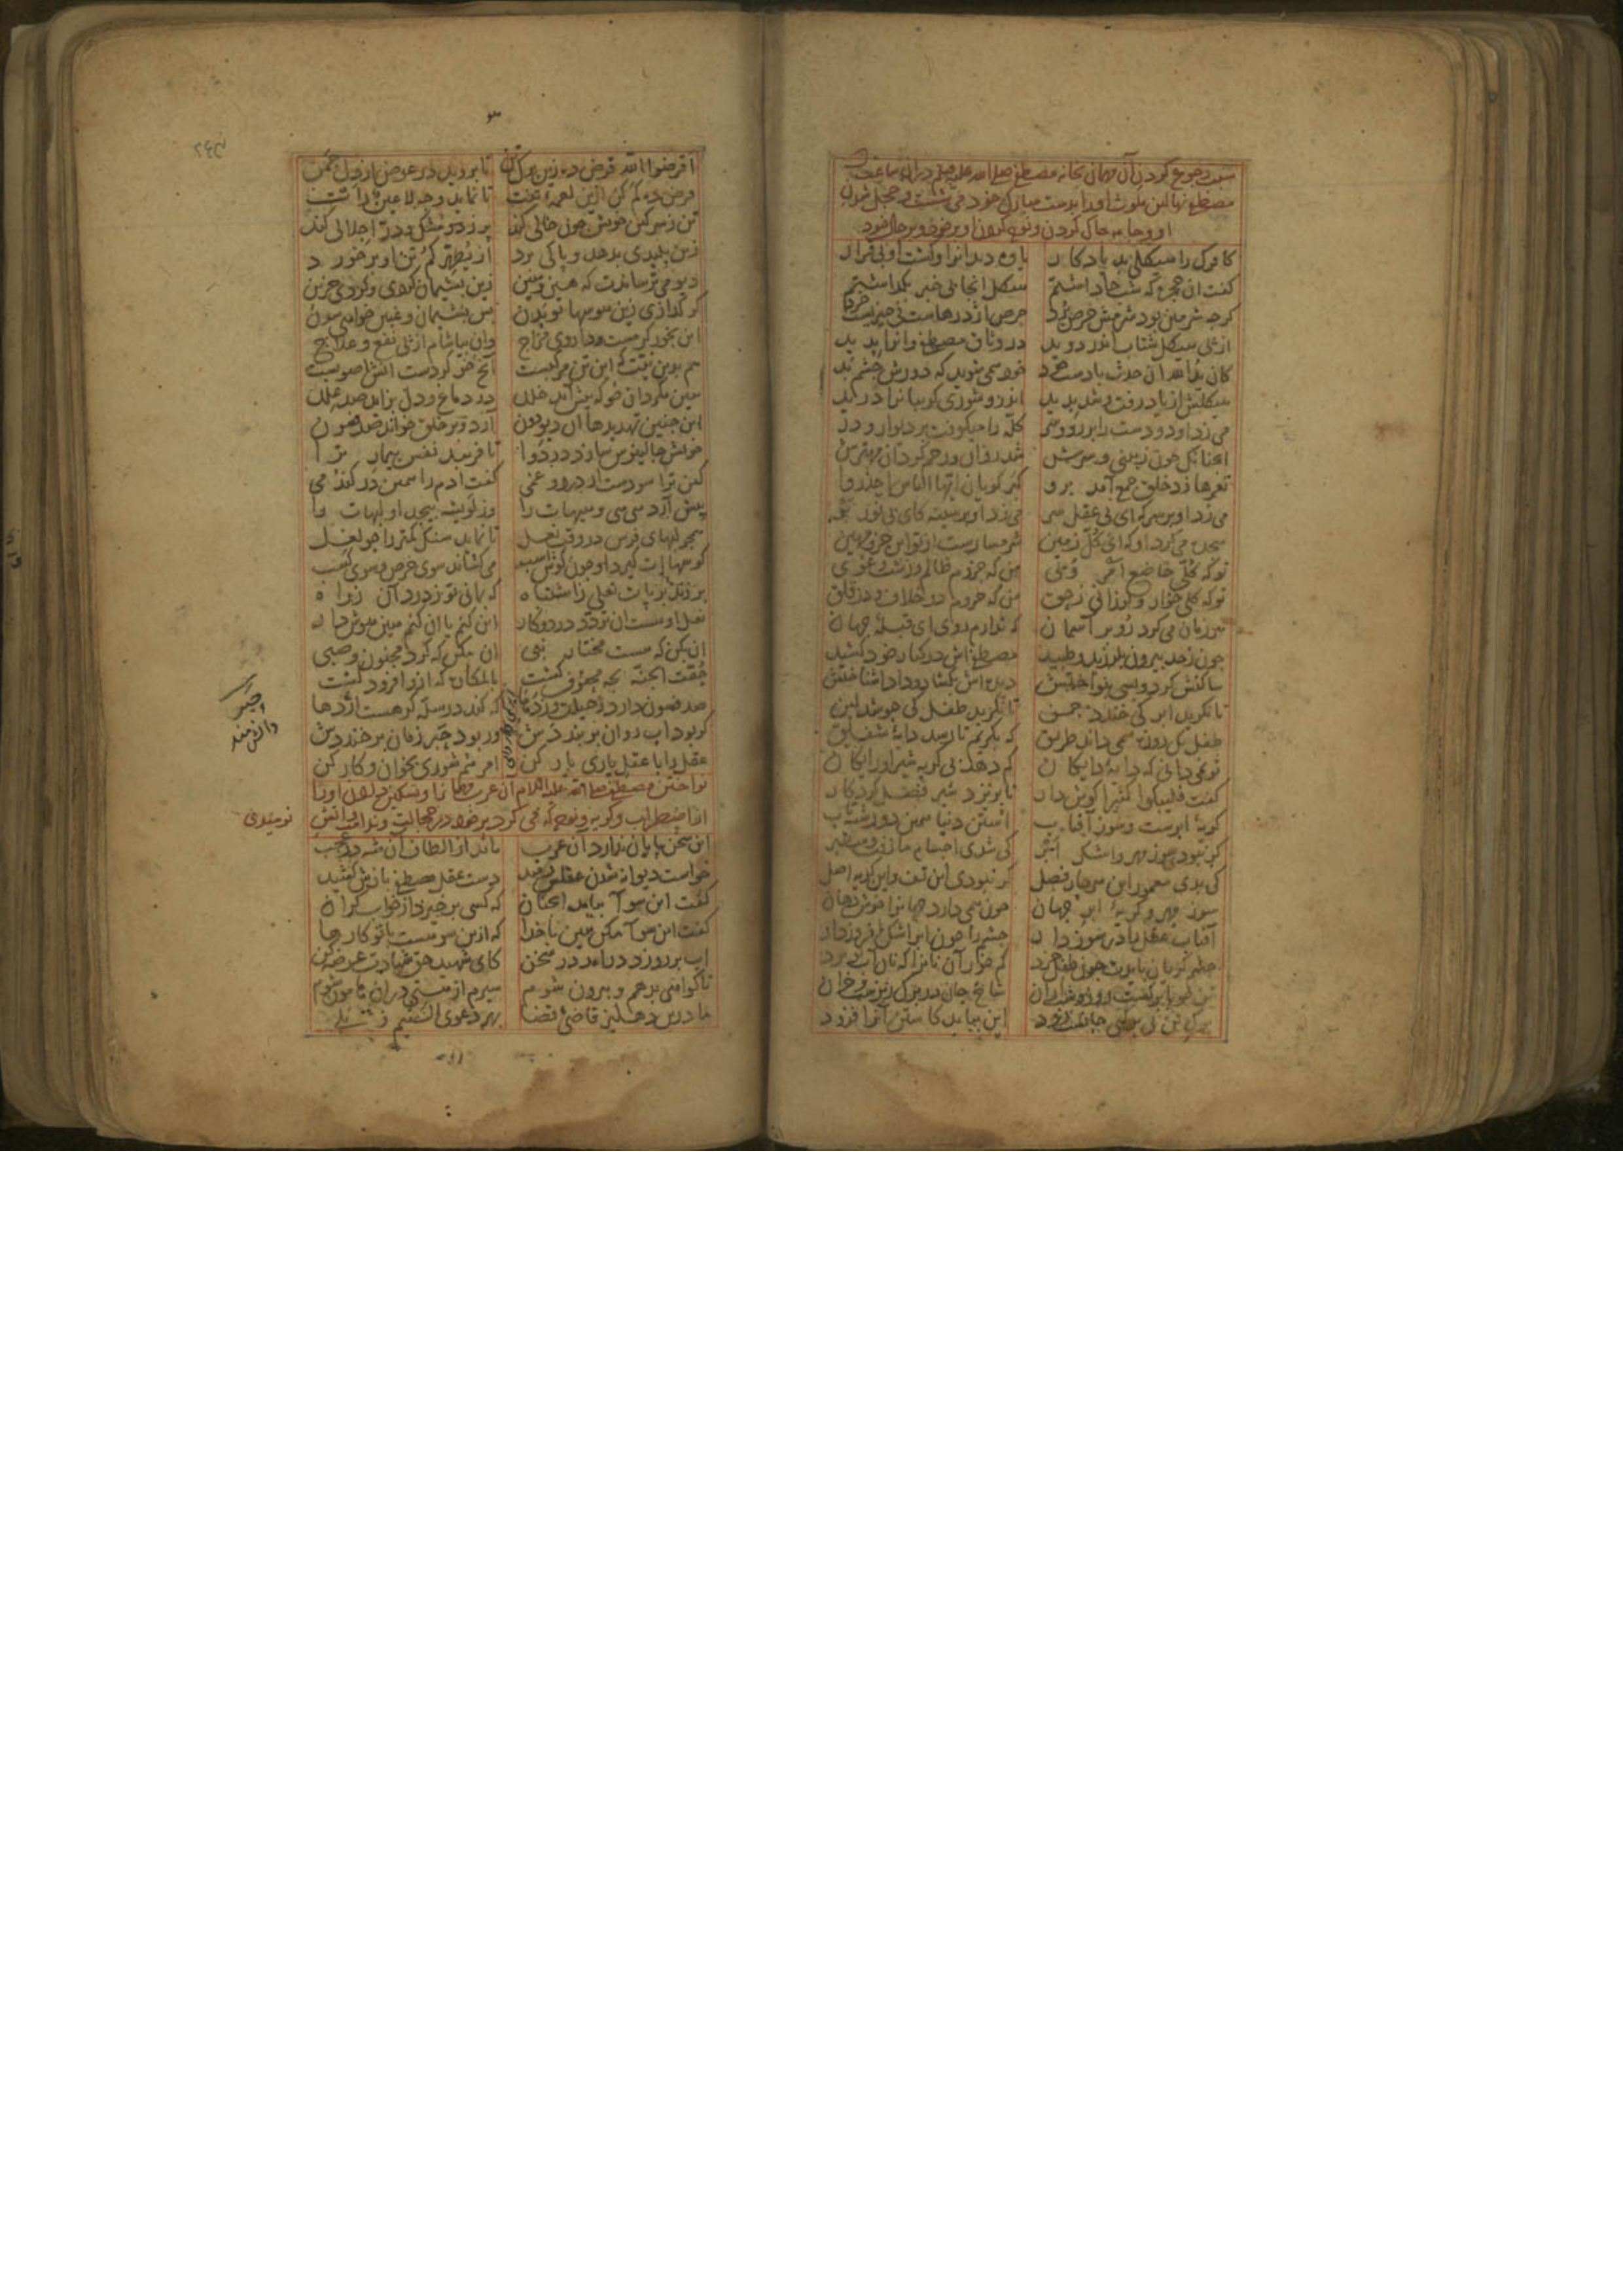 سبب رجوع کردن آن مهمان بخانه مصطفی صلی الله علیه وسلم در آن ساعت که
مصطفی نهالین ملوث او را بدست مبارک خود می شست و خجل شدن
او و جامه چاک کردن و نوحه کردن او بر خود و بر حال خود
کافرک را هیکلی بد یادکار یاوه دید انرا و کشت او بی قرار
کفت ان حجره که شب جا داشتم هیکل انجا بی خبر بکذاشتم
کرچه شرمین بود شرمش حرص برد حرص اژدرهاست نی چیزیست خرد
از پی هیکل شتاب اندر دوید در وثاق مصطفی وانرا بدید
کان ید الله ان حدث با دست خود خوش همی شوید که دورش چشم بد
هیکلش از یاد رفت و شد بدید اندرو شوری کریبانرا درید
می زد او دو دست را بر رو و سر کله را میکوفت بر دیوار و در
انچنانک خون ز بینی و سرش شد روان و رحم کرد ان مهترش
نعرها زد خلق جمع آمد برو کبر کویان ایها الناس احذروا
می زد او بر سر که ای بی عقل سر می زد او بر سینه کای بی نور بر
سجده می کرد او که ای کل زمین شرمسارست از تو این جزو مهین
تو که کلی خاضع امر ویی من که جزوم ظالم و زشت و غوی
تو که کلی خوار و لرزانی ز حق من که جزوم در خلاف و در قلق
هر زمان می کرد رو بر آسمان که ندارم روی ای قبله جهان
چون ز حد بیرون بلرزید و طپید مصطفی اش در کنار خود کشید
ساکنش کرد و بسی بنواختش دیده اش بکشاد و داد اشناختش
تا نکرید ابر کی خندد چمن تا نکرید طفل کی جوشد لبن
طفل یک روزه همی داند طریق که بکریم تا رسد دایه شفیق
تو نمی دانی که دایه دایکان کم دهد بی کریه شیر او رایکان
کفت فلیبکوا کثیرا کوش دار تا بریزد شیر فضل کردکار
کریه ابرست و سوز آفتاب استن دنیا همین دو رشته تاب
کر نبودی سوز مهر و اشک ابر کی شدی اجسام ما زفت و سطبر
کی بدی معمور این هر چار فصل کر نبودی این تف و این کریه اصل
سوز مهر و کریه ابر جهان چون همی دارد جهانرا خوش دهان
آفتاب عقل را در سوز دار چشم را چون ابر اشک افروز دار
چشم کریان بایدت چون طفل خرد کم خور آن نانرا که نان آب تو برد
تن چو با برکست روز و شب از آن شاخ جان در برک ریزست و خزان
برک تن بی برکی جانست زود این بباید کاستن آنرا فزود
اقرضوا الله قرض ده زین برک تن تا بروید در عوض از دل چمن
قرض ده کم کن ازین لقمه تنت تا نماید وجه لا عین رات
تن ز سرکین خویش چون خالی کند پر ز در و مشک و در اجلالی کند
زین پلیدی بدهد و پاکی برد از یطهرکم تن او بر خورد
دیو می ترساندت که هین و هین زین پشیمان کردی و کردی حزین
کر کدازی زین هوسها تو بدن بس پشیمان و غمین خواهی شدن
این بخور کرمست و داروی مزاج وان بیاشام از پی نفع و علاج
هم بدین نیت که این تن مرکبست آنچ خو کردست انش اصوبست
هین مکردان خو که پیش آید خلل در دماغ و دل بزاید صد علل
این چنین تهدیدها آن دیو دون آرد و بر خلق خواند صد فسون
خویش جالینوس سازد در دوا تا فریبد نفس بیمار ترا
کین ترا سودست از درد و غمی کفت ادم را همین در کندمی
پیش آرد هی هی و هیهات را وز لویشه پیچد او لبهات را
همچو لبهای فرس در وقت نعل تا نماید سنک کمتر را چو لعل
کوشهاات کیرد او چون کوش اسب می کشاند سوی حرص و سوی کسب
بر زند بر پات نعلی ز اشتباه که بمانی تو ز درد آن ز راه
نعل او هست ان تردد در دو کار این کنم یا ان کنم هین هوش دار
ان بکن که هست مختار نبی ان مکن که کرد مجنون و صبی
حفت الجنه بچه محفوف کشت بالمکاره که ازو افزود کشت
صد فسون دارد ز حیلت وز دغا که کند در سله کر هست اژدها
کر بود اب روان بر بنددش ور بود حبر زمان بر خنددش
عقل را با عقل یاری یار کن امرهم شوری بخوان و کار کن
حبر
دانشمند
نواختن مصطفی صلی الله علیه السلام آن عرب مهمان را و تسکین دادن او را
از اضطراب و کریه و نوحه که می کرد بر خود در خجالت و ندامت و آتش
نومیدی
این سخن پایان ندارد آن عرب ماند از الطاف آن شه در عجب
خواست دیوانه شدن عقلش رمید دست عقل مصطفی بازش کشید
کفت این سو آ بیامد انچنان که کسی بر خیزد از خواب کران
کفت این سو آ مکن هین با خود آ که ازین سو هست با تو کارها
اب بر رو زد در آمد در سخن کای شهید حق شهادت عرضه کن
تا کواهی بدهم و بیرون شوم سیرم از هستی در ان هامون شوم
ما درین دهلیز قاضی قضا بهر دعوی الستیم و بلی